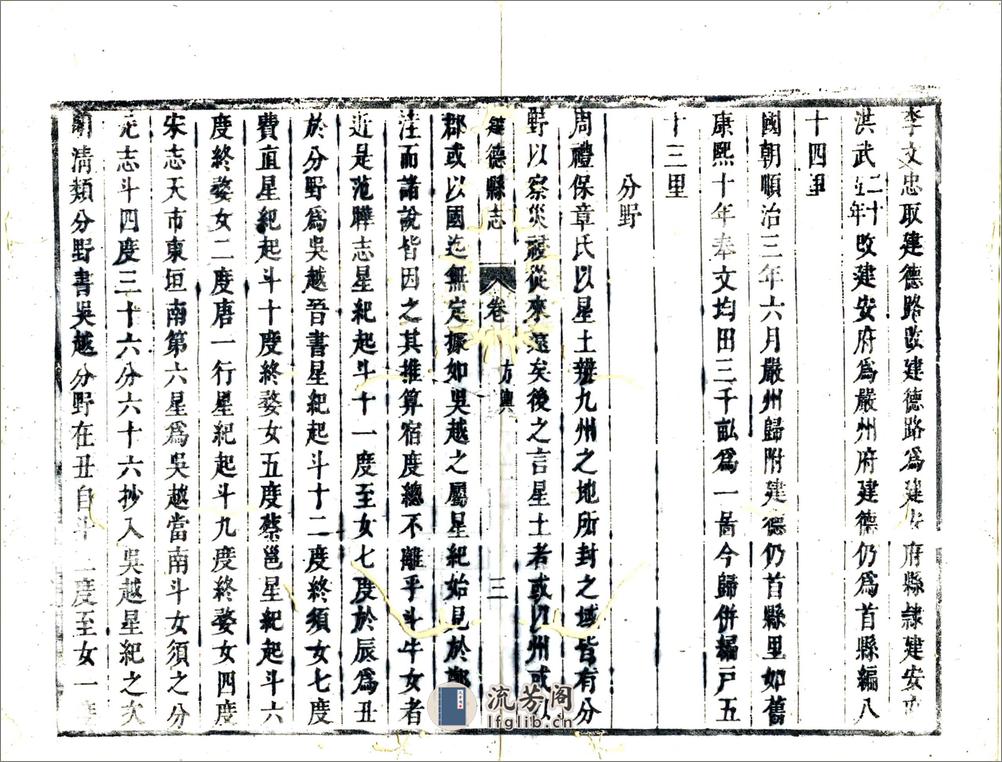 李文忠取建德路改建德路爲建安府縣隸建安
洪武二十五年改建安府爲嚴州府建德仍爲首縣編八
十四里
國朝順治三年六月嚴州歸附建德仍首縣里如舊
康熙十年奉文均田三千畝爲一啚今歸併編戸五
十三里
分野
周禮保章氏以星土辨九州之地所封之域皆有分
野以察災祲從來遠矣後之言星土者或以州或以
建德縣志 卷 方輿 三
郡或以國迄無定據如吳越之屬星紀始見於鄭
注而諸說皆因之其推算宿度總不離乎斗牛女者
近是范曄志星紀起斗十一度至女七度於辰爲丑
於分野爲吳越晉書星紀起斗十二度終須女七度
費直星紀起斗十度終婺女五度蔡邕星紀起斗六
度終婺女二度唐一行星紀起斗九度終婺女四度
宋志天市東垣南第六星爲吳越當南斗女須之分
元志斗四度三十六分六十六抄入吳越星紀之次
明清類分野書吳越分野在丑自斗二度至女一度
流芳阁
lfglib.cn